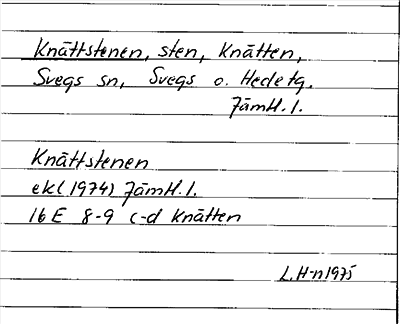 Knättstenen, sten, Knätten,
Svegs sn, Svegs o. Hede tg.
Jämtl. l.
Knättstenen
ek ( 1974) Jämtl. l.
16 E 8-9 c-d Knätten
L. H-n 1975